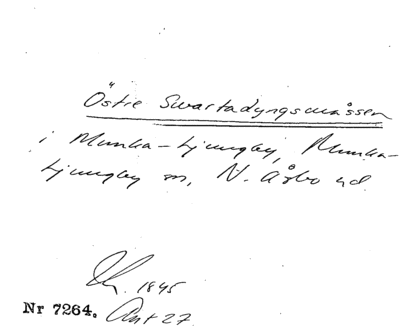 Östre Swartadyngsmåssen
i Munka-Ljungby, Munka-
Ljungby sn, N. Åsbo hd.
1845
Nr 7264. Akt 27